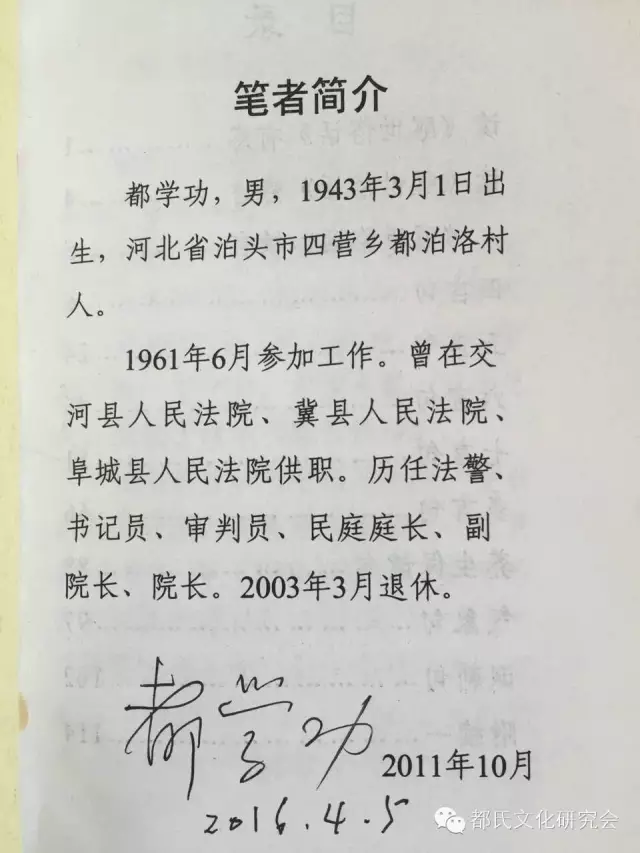 笔者简介
都学功，男，1943年3月1日出
生，河北省泊头市四营乡都泊洛村
人。
1961年6月参加工作。曾在交
河县人民法院、冀县人民法院、
阜城县人民法院供职。历任法警、
书记员、审判员、民庭庭长、副
院长、院长。2003年3月退休。
都学功
2011年10月
2016.4.5
都氏文化研究会